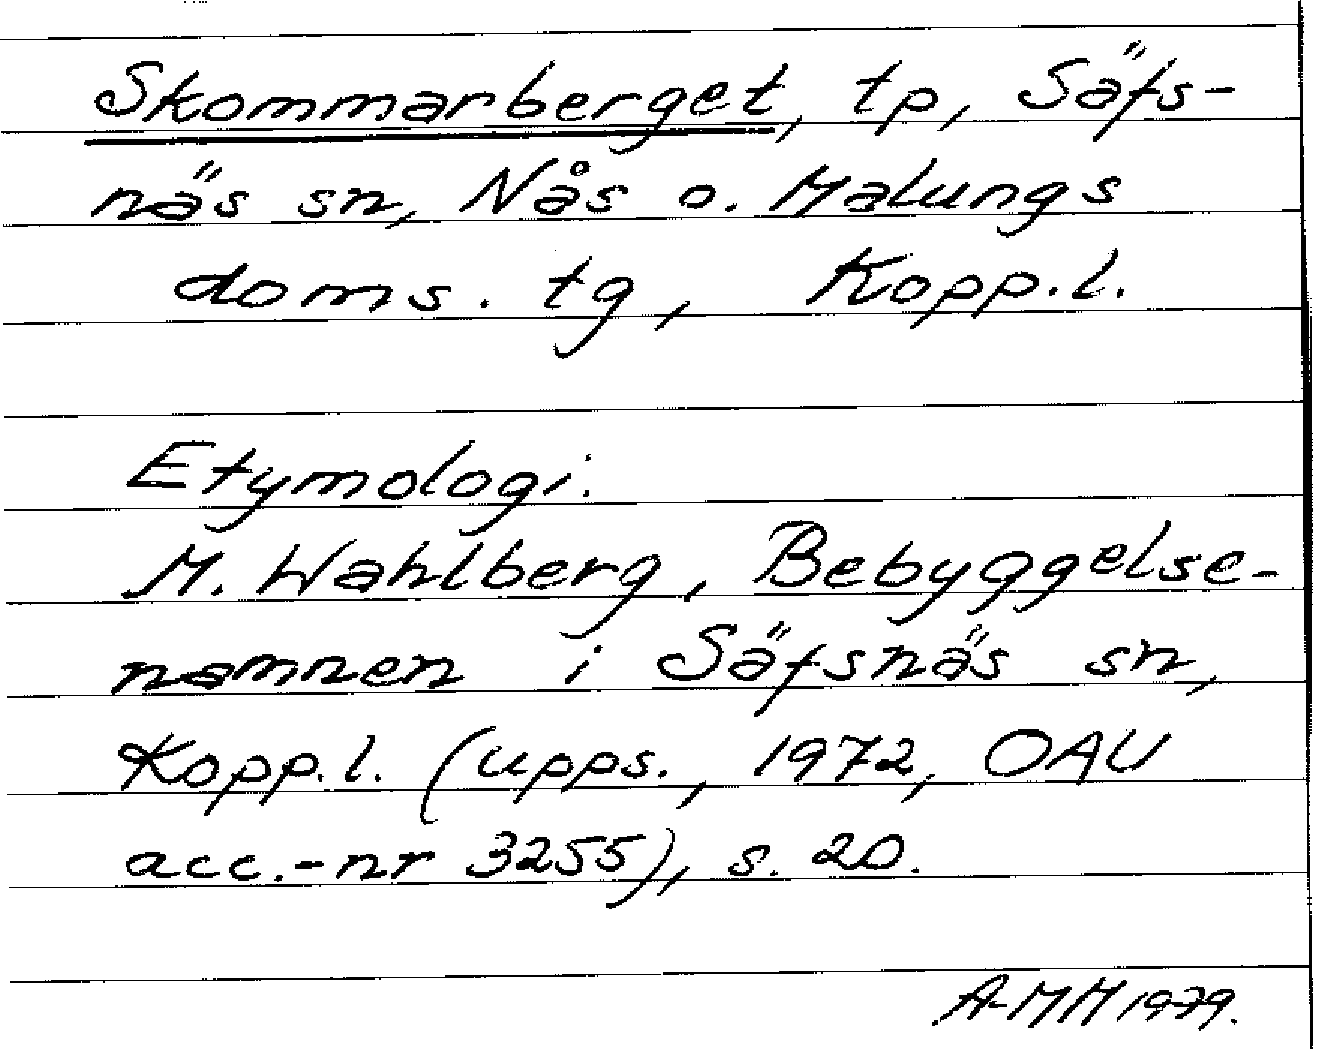 Skommarberget, tp, Säfs-
näs sn, Nås o. Malungs
doms. tg, Kopp.l.
Etymologi:
M. Wahlberg, Bebyggelse-
namnen i Säfsnäs sn,
Kopp.l. (upps., 1972, OAU
acc.-nr 3255), s. 20.
A-MH 1979.